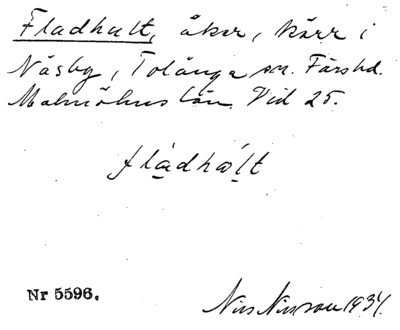 Fladhult, åker, kärr i
Näsby, Tolånga sn. Färs hd.
Malmöhus län. Vid 25.
flàdhú̵lt
Nr 5596.
Nils Nilsson 1934.